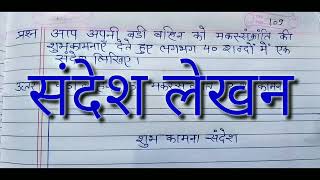 109
प्रश्न आप अपनी बडी बहिन को मकरसंक्रांति की
शुभकामनाएँ देते हुए लगभग 40 शब्दों में एक
संदेश लिखिए।
संदेश लेखन
शुभ कामना संदेश